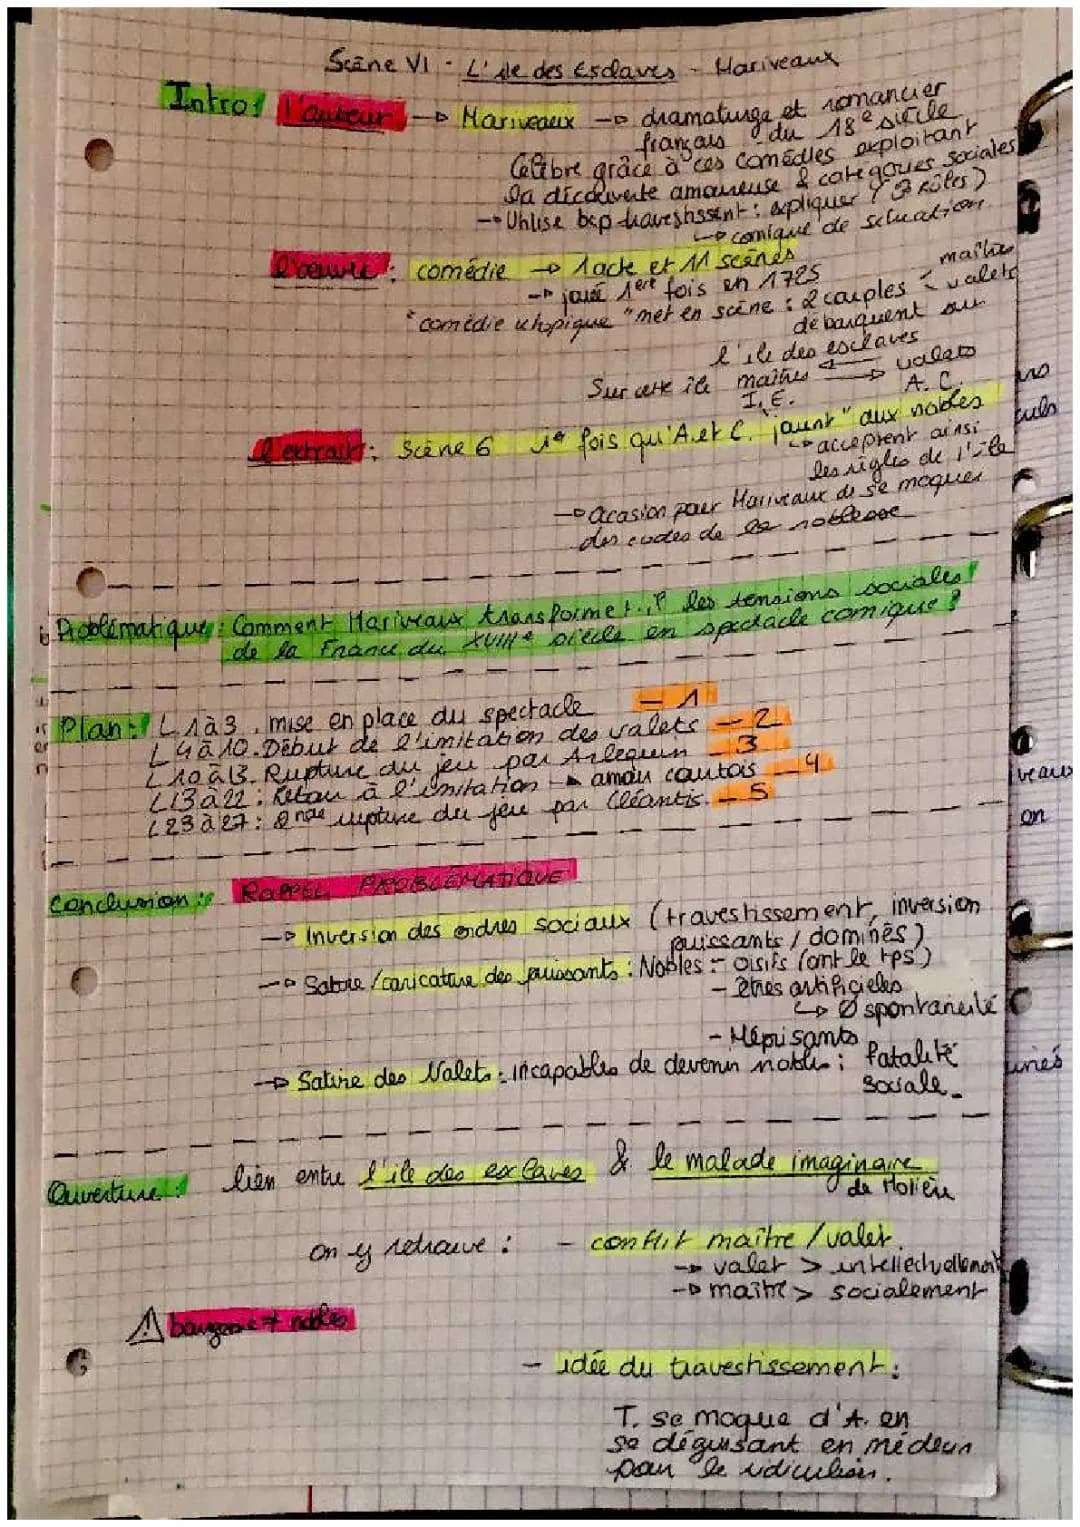 Scène VI - L'île des Esclaves - Marivaux
Intro: l'auteur → Marivaux → dramaturge et romancier
français du 18e siècle
Célèbre grâce à ces comédies exploitant
la découverte amoureuse & catégories sociales
→ Utilise bcp travestissent : expliquer ( rôles)
→ comique de situation
l'œuvre : comédie → 1 acte et 11 scènes
→ joué 1ère fois en 1725
"comédie utopique" met en scène : 2 couples < maîtres valets
débarquent sur
l'île des esclaves
Sur cette île maîtres ⇄ valets
I. E. A. C.
l'extrait : Scène 6 1e fois qu'A. et C. "jouent" aux nobles
↳ acceptent ainsi
les règles de l'île
→ Ocasion pour Marivaux de se moquer
des codes de la noblesse
Problématique : Comment Marivaux transforme t-il les tensions sociales
de la France du XVIIIe siècle en spectacle comique ?
Plan : L 1 à 3 . mise en place du spectacle - 1
L 4 à 10. Début de l'imitation des valets - 2
L 10 à 13. Rupture du jeu par Arlequin - 3
L 13 à 22 : Retour à l'imitation → amour courtois - 4
L 23 à 27 : 2nde rupture du jeu par Cléantis. - 5
Conclusion : RAPPEL PROBLÉMATIQUE
→ Inversion des ordres sociaux (travestissement, inversion
puissants / dominés)
→ Satire / caricature des puissants : Nobles : - oisifs (ont le tps)
- êtres artificieles
↳ Ø spontanéité
- Méprisants
→ Satire des Valets : incapables de devenir nobles : fatalité
sociale.
Ouverture : lien entre l'île des esclaves & le malade imaginaire
de Molière
on y retrouve : - conflit maître / valet.
→ valet > intellectuellement
→ maître > socialement
⚠ bourgeois ≠ nobles
- idée du travestissement :
T. se moque d'A. en
se déguisant en médecin
pour le ridiculiser.